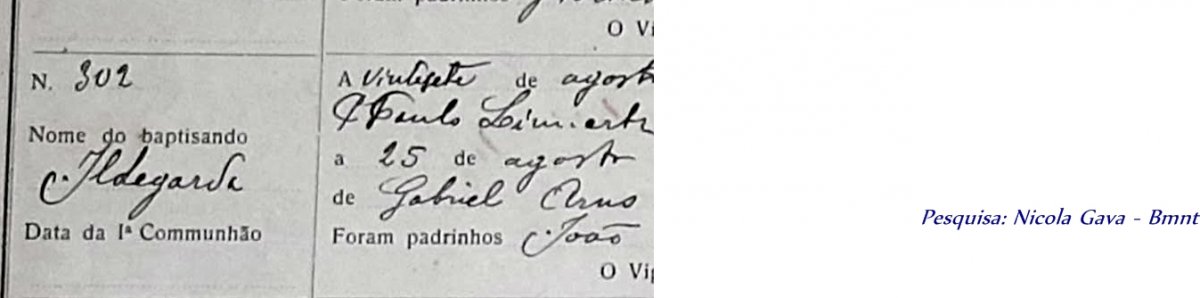 Foram padrinhos
O Vi
N. 302
Nome do baptisando
Ildegarda
Data da Iª Communhão
A vintesete de agosto
Paulo
a 25 de agosto
de Gabriel Arus
Foram padrinhos João
O Vig
Pesquisa: Nicola Gava - Bmnt